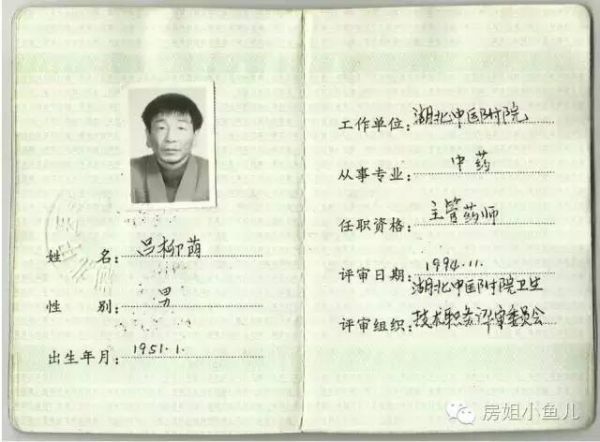 姓 名: 吕柳荫
性 别: 男
出生年月: 1951.1.
工作单位: 湖北中医附院
从事专业: 中药
任职资格: 主管药师
评审日期: 1994.11.
湖北中医附院卫生
评审组织: 技术职务评审委员会
房姐小鱼儿